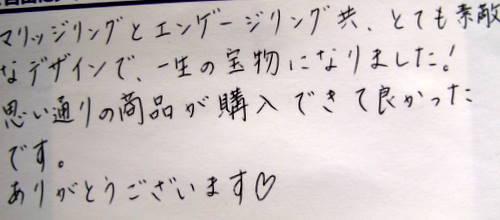 マリッジリングとエンゲージリング共、とても素敵
なデザインで、一生の宝物になりました!
思い通りの商品が購入できて良かった
です。
ありがとうございます♡